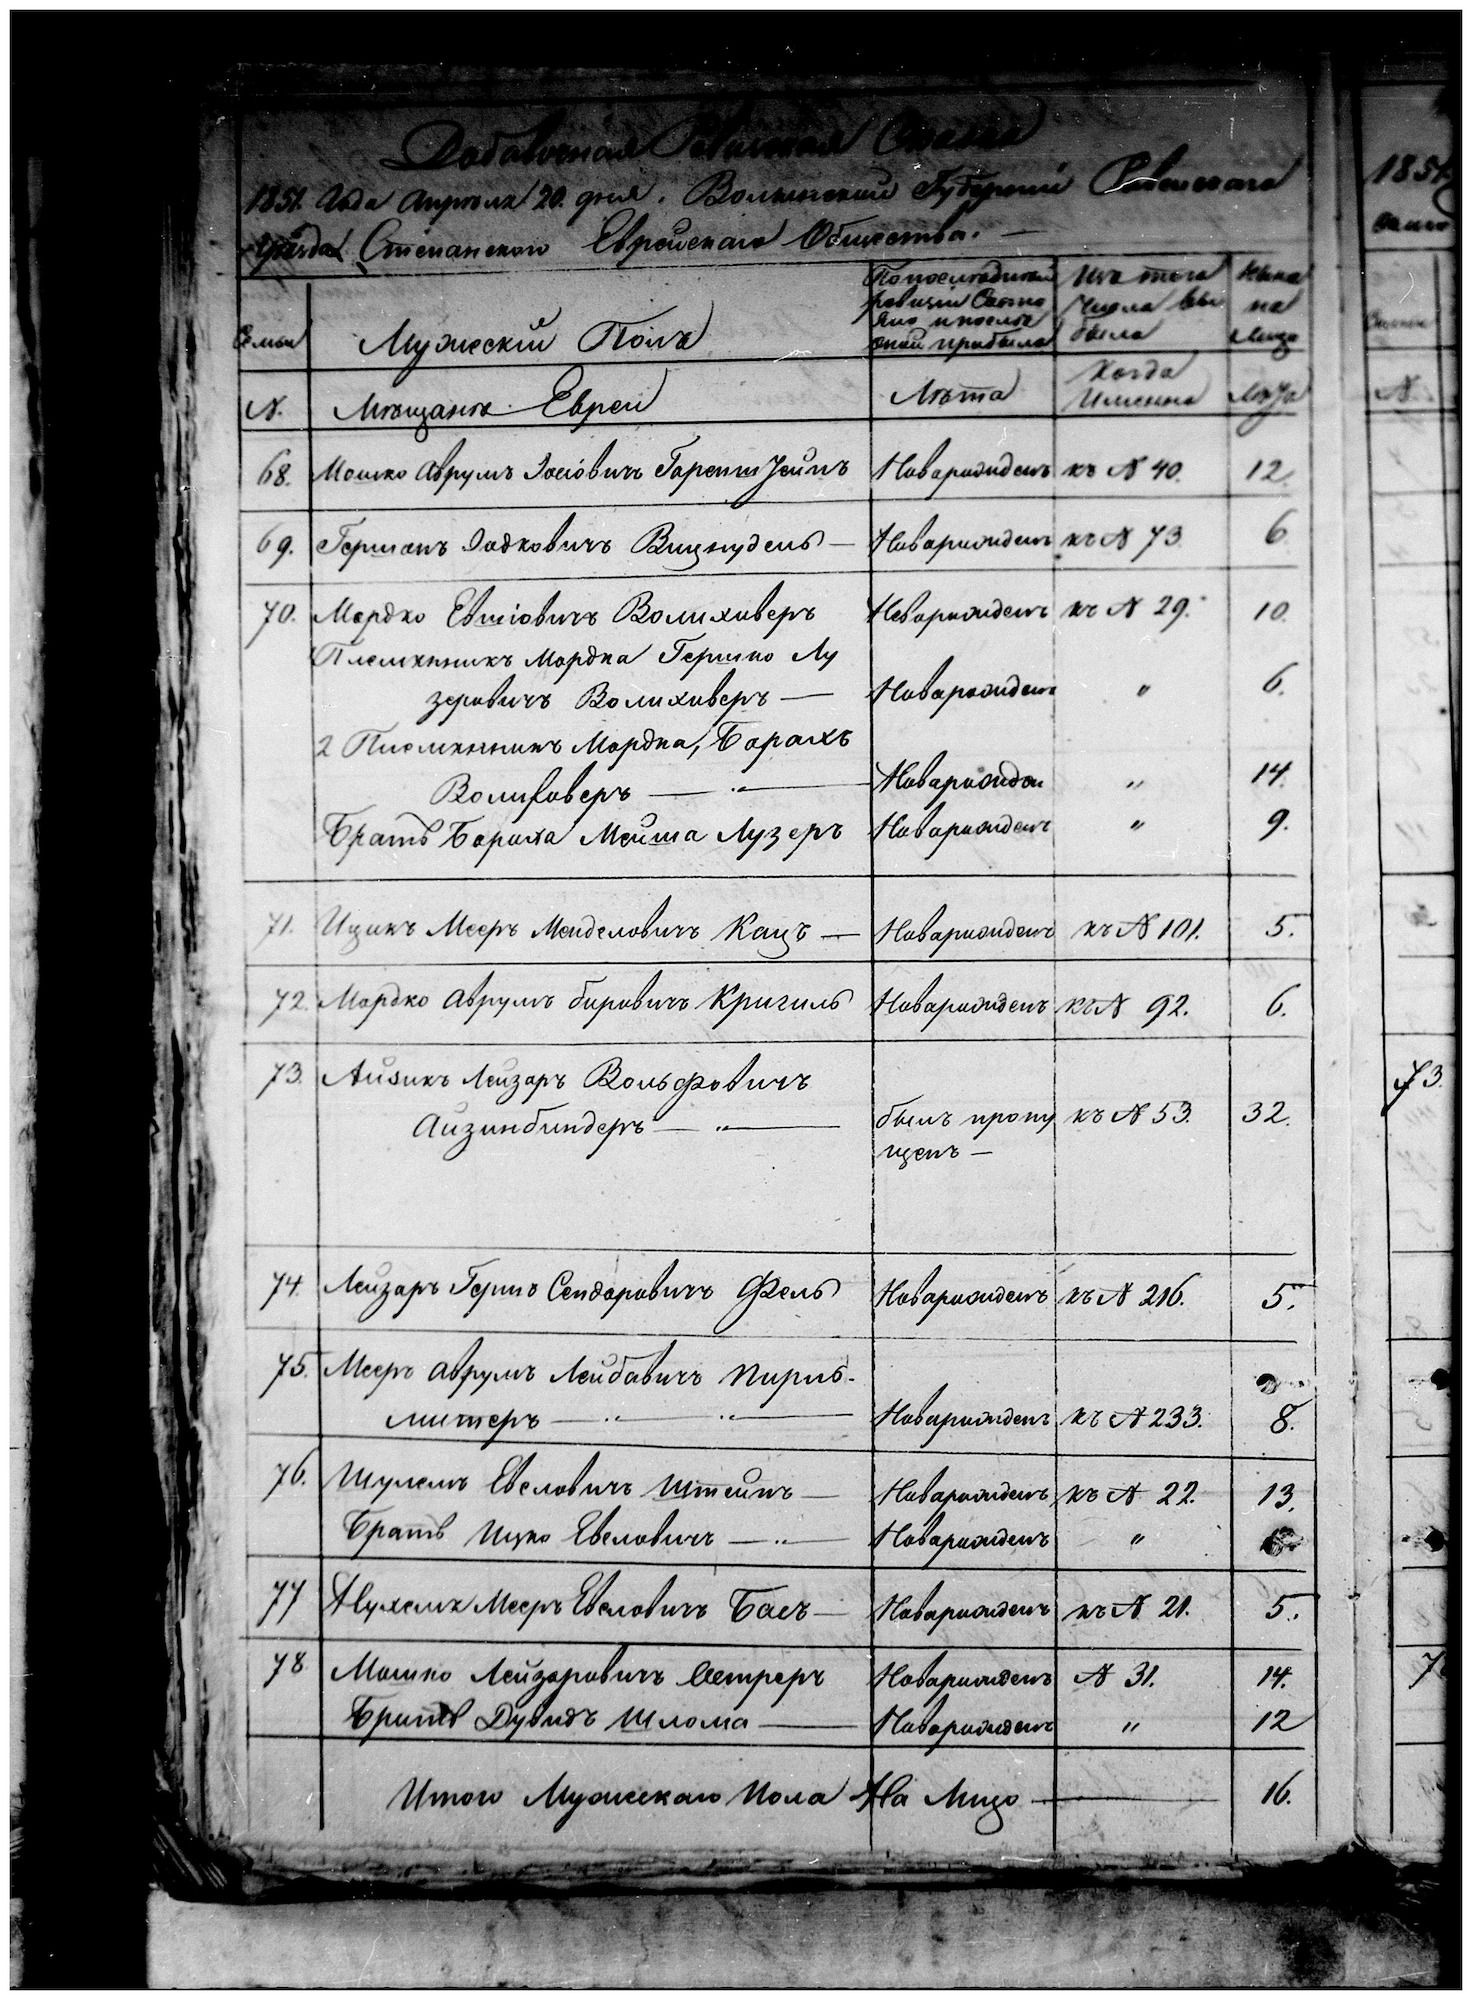 Добавочная Ревизская Сказка
1851. Года Апреля 20. дня. Волынской Губернии Ровенскаго
уезда Степанского Еврейскаго Общества. —
Семьи
Мужеский Полъ
По последней ревизии Состояло и после оной прибыло
Изъ того Числа Выбыло
Ныне на Лицо
N.
Мещане Евреи
Лета
Когда Именно
Лета
68. Мошко Аврумъ Iосiовичъ Новарожденъ къ N 40. 12.
69. Гершонъ Новарожденъ къ N 73 6
70. Мордко Волиховеръ Новарожденъ къ N 29. 10.
Племянникъ Мордка Гершко Лу
зеровичъ Волиховеръ — Новарожденъ " 6.
2 Племянникъ Мордка, Борахъ
Волиховеръ — " — Новарожден " 14.
Братъ Бораха Мейша Лузеръ Новарожденъ " 9.
71. Ицикъ Мееръ Менделовичъ Кацъ — Новарожденъ къ N 101. 5.
72. Мордко Аврумъ Беровичъ Кригиль Новарожденъ къ N 92. 6.
73. Айзикъ Лейзаръ Вольфовичъ
Айзинбиндеръ — " — былъ пропу къ N 53. 32.
щенъ —
74. Лейзаръ Гершъ Сендоровичъ Фель Новарожденъ къ N 216. 5.
75. Мееръ Аврумъ Лейбовичъ Пирль-
митеръ — " — " — Новарожденъ къ N 233. 8.
76. Шулемъ Евеловичъ Штейнъ — Новарожденъ къ N 22. 13.
Братъ Ицко Евеловичъ — " — Новарожденъ "
77 Мееръ Евеловичъ Басъ — Новарожденъ къ N 21. 5.
78 Мошко Лейзоровичъ Новарожденъ N 31. 14.
Братъ Дувидъ Шлома — Новарожденъ " 12
Итого Мужескаго Пола На Лицо — 16.
1851
73.
7